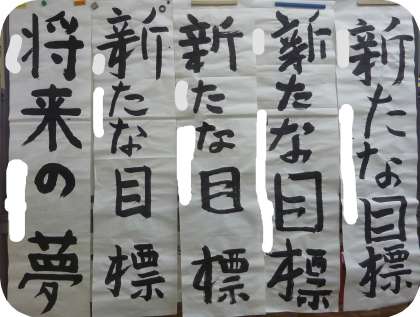 新たな目標
新たな目標
新たな目標
新たな目標
将来の夢